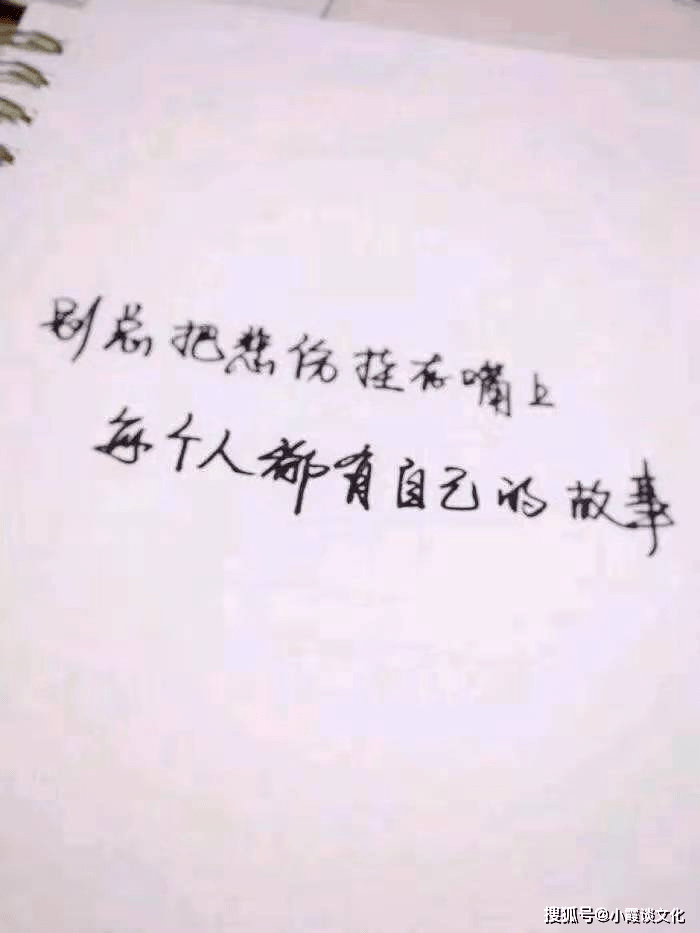 别总把悲伤挂在嘴上
每个人都有自己的故事
搜狐号@小霞谈文化